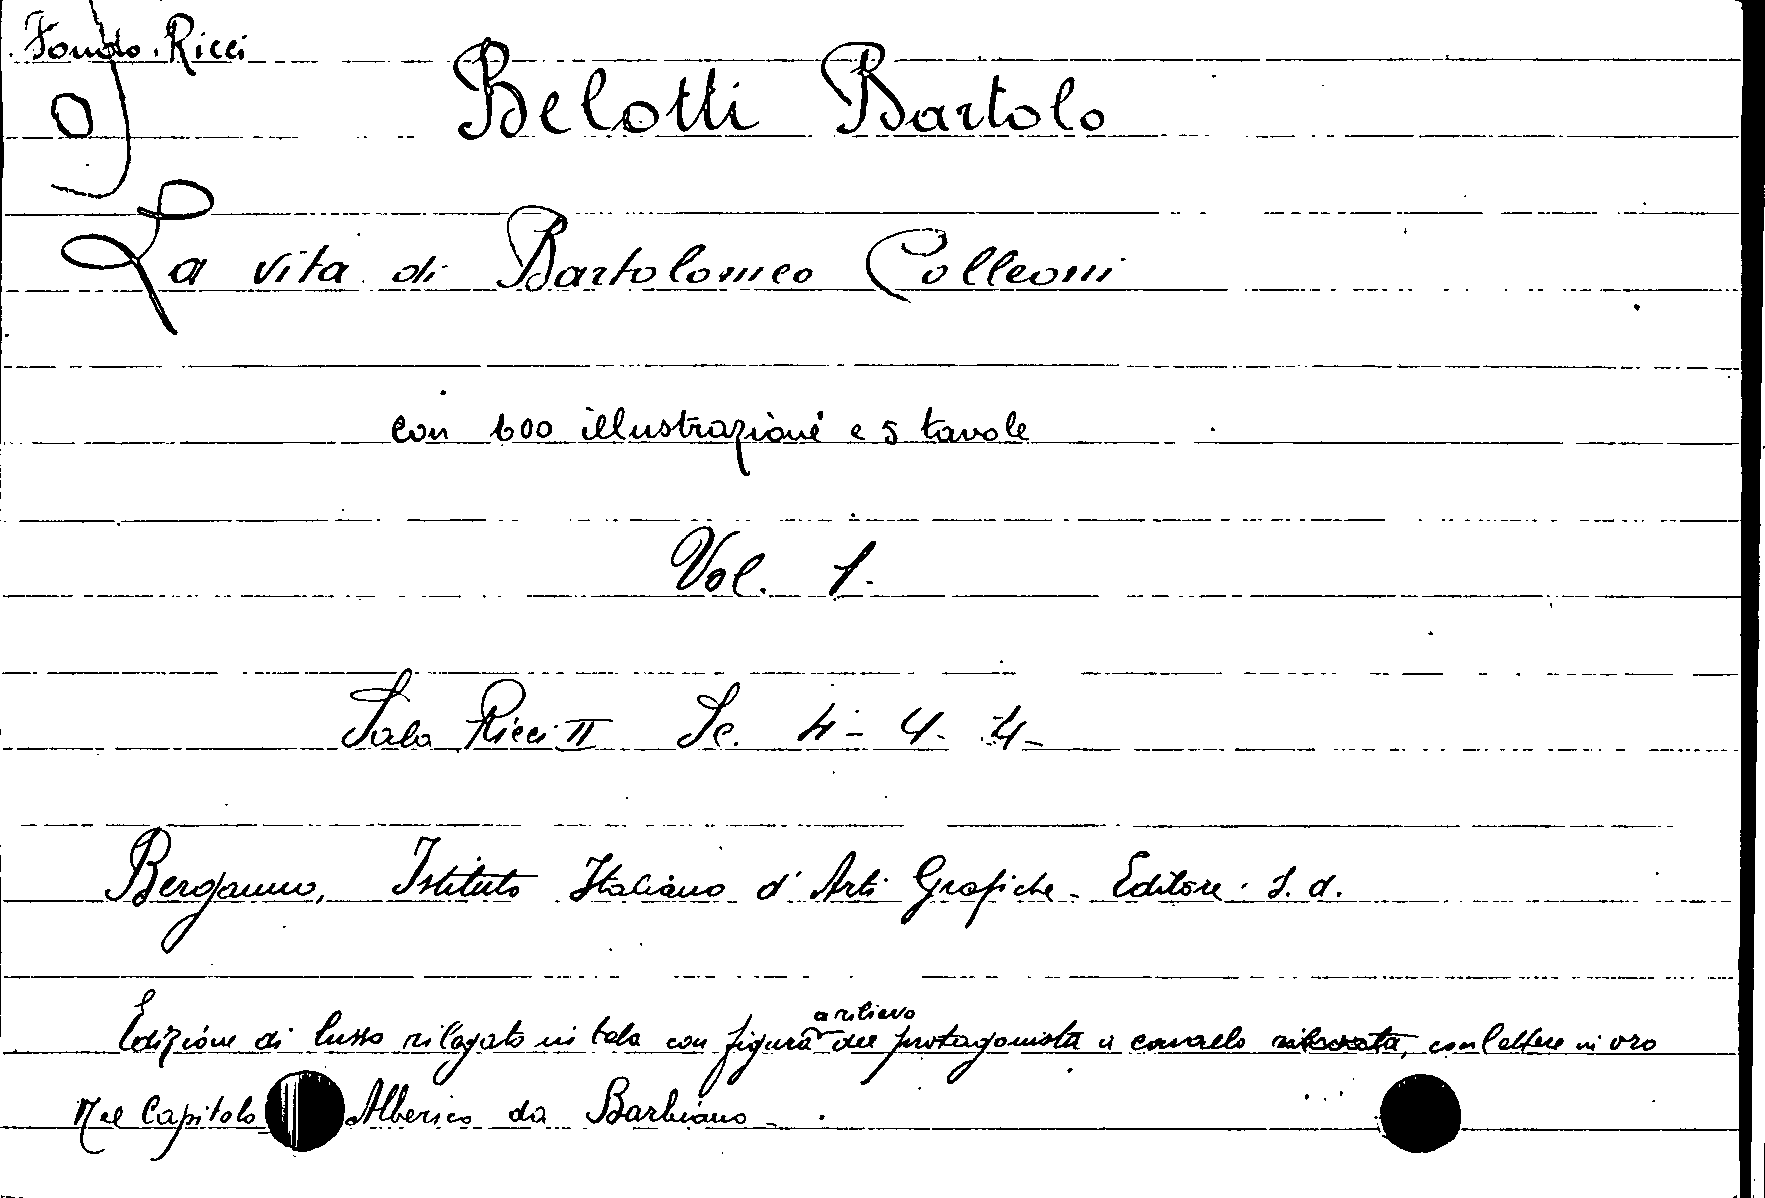 Fondo Ricci
Belotti Bartolo
La vita di Bartolomeo Colleoni
con 600 illustrazioni e 5 tavole
Vol. 1.
Sala Ricci II Sc. 4 - 4 - 4 -
Bergamo, Istituto Italiano d'Arti Grafiche - Editore - s. d.
Edizione di lusso rilegato in tela con figura a rilievo del protagonista a cavallo con lettere in oro
Nel Capitolo Alberico da Barbiano -